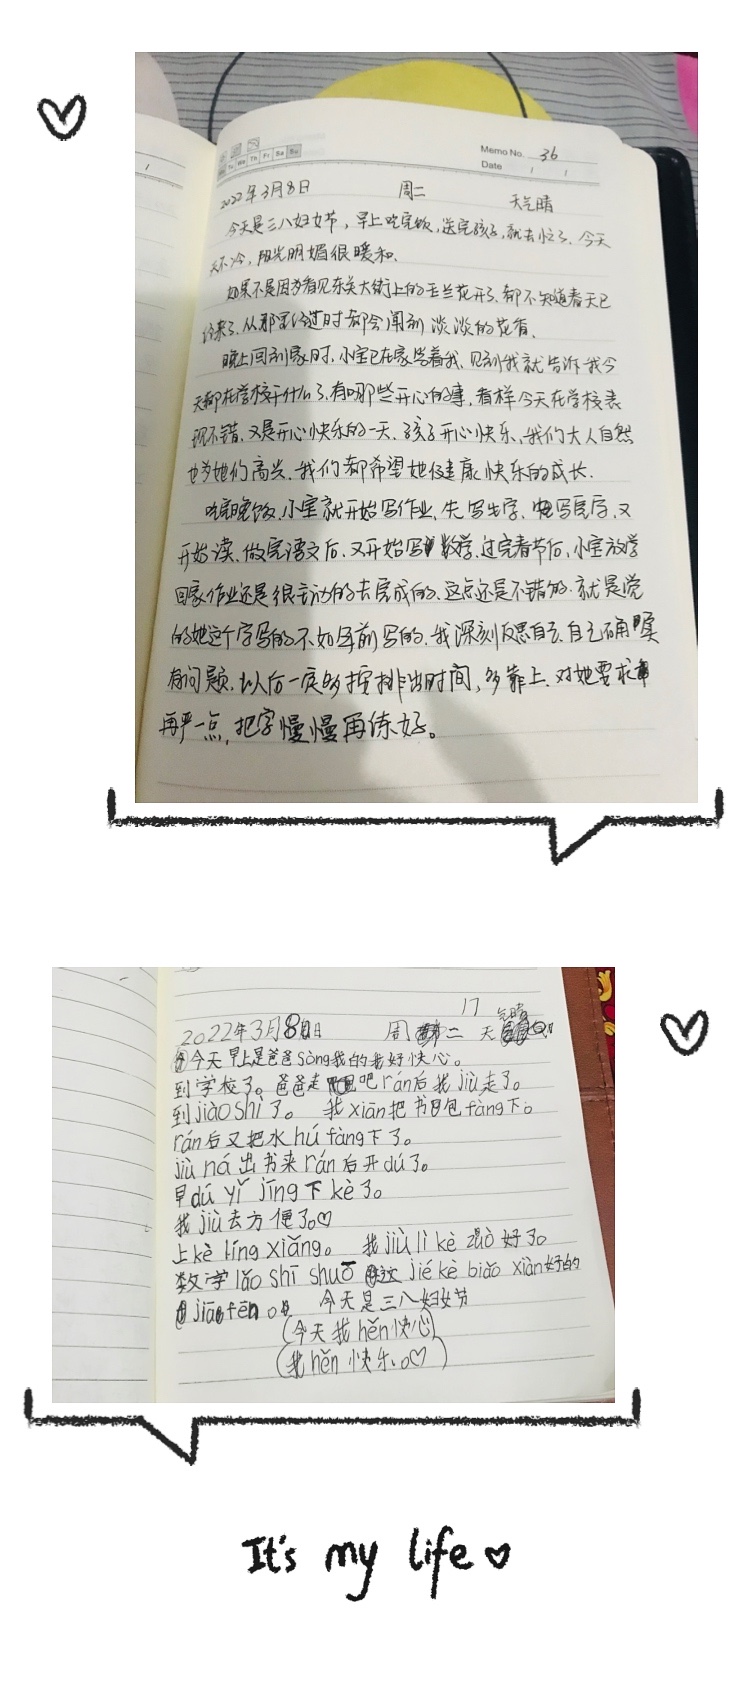 Mo Tu We Th Fr Sa Su
Memo No. 36
Date / /
2022年3月8日 周二 天气晴
今天是三八妇女节,早上吃完饭,送完孩子,就去忙了.今天
天不冷,阳光明媚很暖和.
如果不是因为看见东关大街上的玉兰花开了.都不知道春天已
经来了.从那里经过时都会闻到 淡淡的花香.
晚上回到家时,小宝已在家等着我、见到我就告诉我今
天都在学校干什么了.有哪些开心的事,看样今天在学校表
现不错.又是开心快乐的一天.孩子开心快乐、我们大人自然
也为她们高兴.我们都希望她健康快乐的成长.
吃完晚饭.小宝就开始写作业、先写生字、又
开始读.做完语文后.又开始写数学.过完春节后,小宝放学
回家作业还是很主动的去完成的.这点还是不错的.就是觉
的她这个字写的不如年前写的.我深刻反思自己.自己确实
有问题.以后一定多按排出时间,多靠上.对她要求
再严一点,把字慢慢再练好。
17
2022年3月8日 周二 天气晴
今天早上是爸爸sòng我的我好快心。
到学校了。爸爸走吧rán后我jiù走了。
到jiào shì了。 我xiān把书包fàng下。
rán后又把水hú fàng下了。
jiù ná出书来rán后开dú了。
早dú yǐ jīng下kè了。
我jiù去方便了。♡
上kè líng xiǎng。 我jiù lì kè zuò好了。
数学lǎo shī shuō 这jié kè biǎo xiàn好的
jiā fēn。 今天是三八妇女节
(今天我hěn快心)
(我hěn快乐。♡)
It's my life